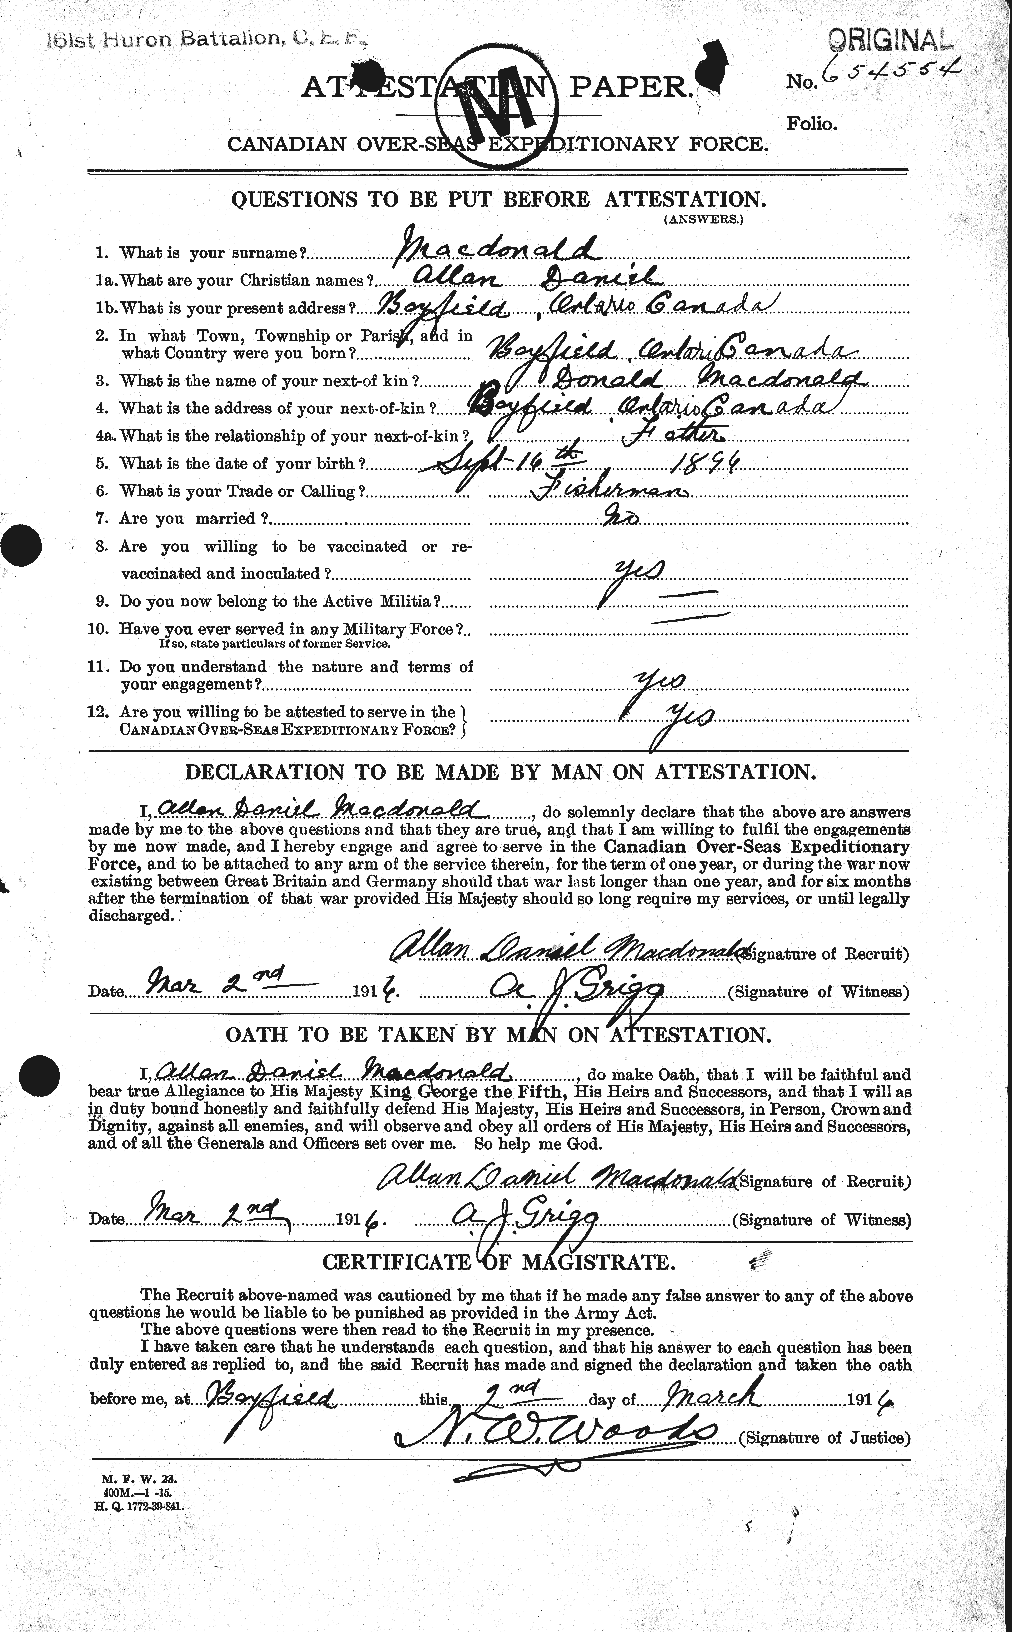 161st Huron Battalion, C. E. F.
ORIGINAL
No. 654554
ATTESTATION PAPER.
M
Folio.
CANADIAN OVER-SEAS EXPEDITIONARY FORCE.
QUESTIONS TO BE PUT BEFORE ATTESTATION.
(ANSWERS.)
1. What is your surname? Macdonald
1a. What are your Christian names? Allan Daniel
1b. What is your present address? Bayfield, Ontario Canada
2. In what Town, Township or Parish, and in
what Country were you born? Bayfield, Ontario Canada
3. What is the name of your next-of kin? Donald Macdonald
4. What is the address of your next-of-kin? Bayfield Ontario Canada
4a. What is the relationship of your next-of-kin? Father
5. What is the date of your birth? Sept-16th 1896
6. What is your Trade or Calling? Fisherman
7. Are you married? No
8. Are you willing to be vaccinated or re-
vaccinated and inoculated? yes
9. Do you now belong to the Active Militia? —
10. Have you ever served in any Military Force? —
If so, state particulars of former Service.
11. Do you understand the nature and terms of
your engagement? yes
12. Are you willing to be attested to serve in the
CANADIAN OVER-SEAS EXPEDITIONARY FORCE? yes
DECLARATION TO BE MADE BY MAN ON ATTESTATION.
I, Allan Daniel Macdonald, do solemnly declare that the above are answers
made by me to the above questions and that they are true, and that I am willing to fulfil the engagements
by me now made, and I hereby engage and agree to serve in the Canadian Over-Seas Expeditionary
Force, and to be attached to any arm of the service therein, for the term of one year, or during the war now
existing between Great Britain and Germany should that war last longer than one year, and for six months
after the termination of that war provided His Majesty should so long require my services, or until legally
discharged.
Allan Daniel Macdonald (Signature of Recruit)
Date Mar 2nd 1916. A. J. Grigg (Signature of Witness)
OATH TO BE TAKEN BY MAN ON ATTESTATION.
I, Allan Daniel Macdonald, do make Oath, that I will be faithful and
bear true Allegiance to His Majesty King George the Fifth, His Heirs and Successors, and that I will as
in duty bound honestly and faithfully defend His Majesty, His Heirs and Successors, in Person, Crown and
Dignity, against all enemies, and will observe and obey all orders of His Majesty, His Heirs and Successors,
and of all the Generals and Officers set over me. So help me God.
Allan Daniel Macdonald (Signature of Recruit)
Date Mar 2nd, 1916. A. J. Grigg (Signature of Witness)
CERTIFICATE OF MAGISTRATE.
The Recruit above-named was cautioned by me that if he made any false answer to any of the above
questions he would be liable to be punished as provided in the Army Act.
The above questions were then read to the Recruit in my presence.
I have taken care that he understands each question, and that his answer to each question has been
duly entered as replied to, and the said Recruit has made and signed the declaration and taken the oath
before me, at Bayfield this 2nd day of March 1916
N. W. Woods (Signature of Justice)
M. F. W. 23.
400M.—1 -15.
H. Q. 1772-39-841.